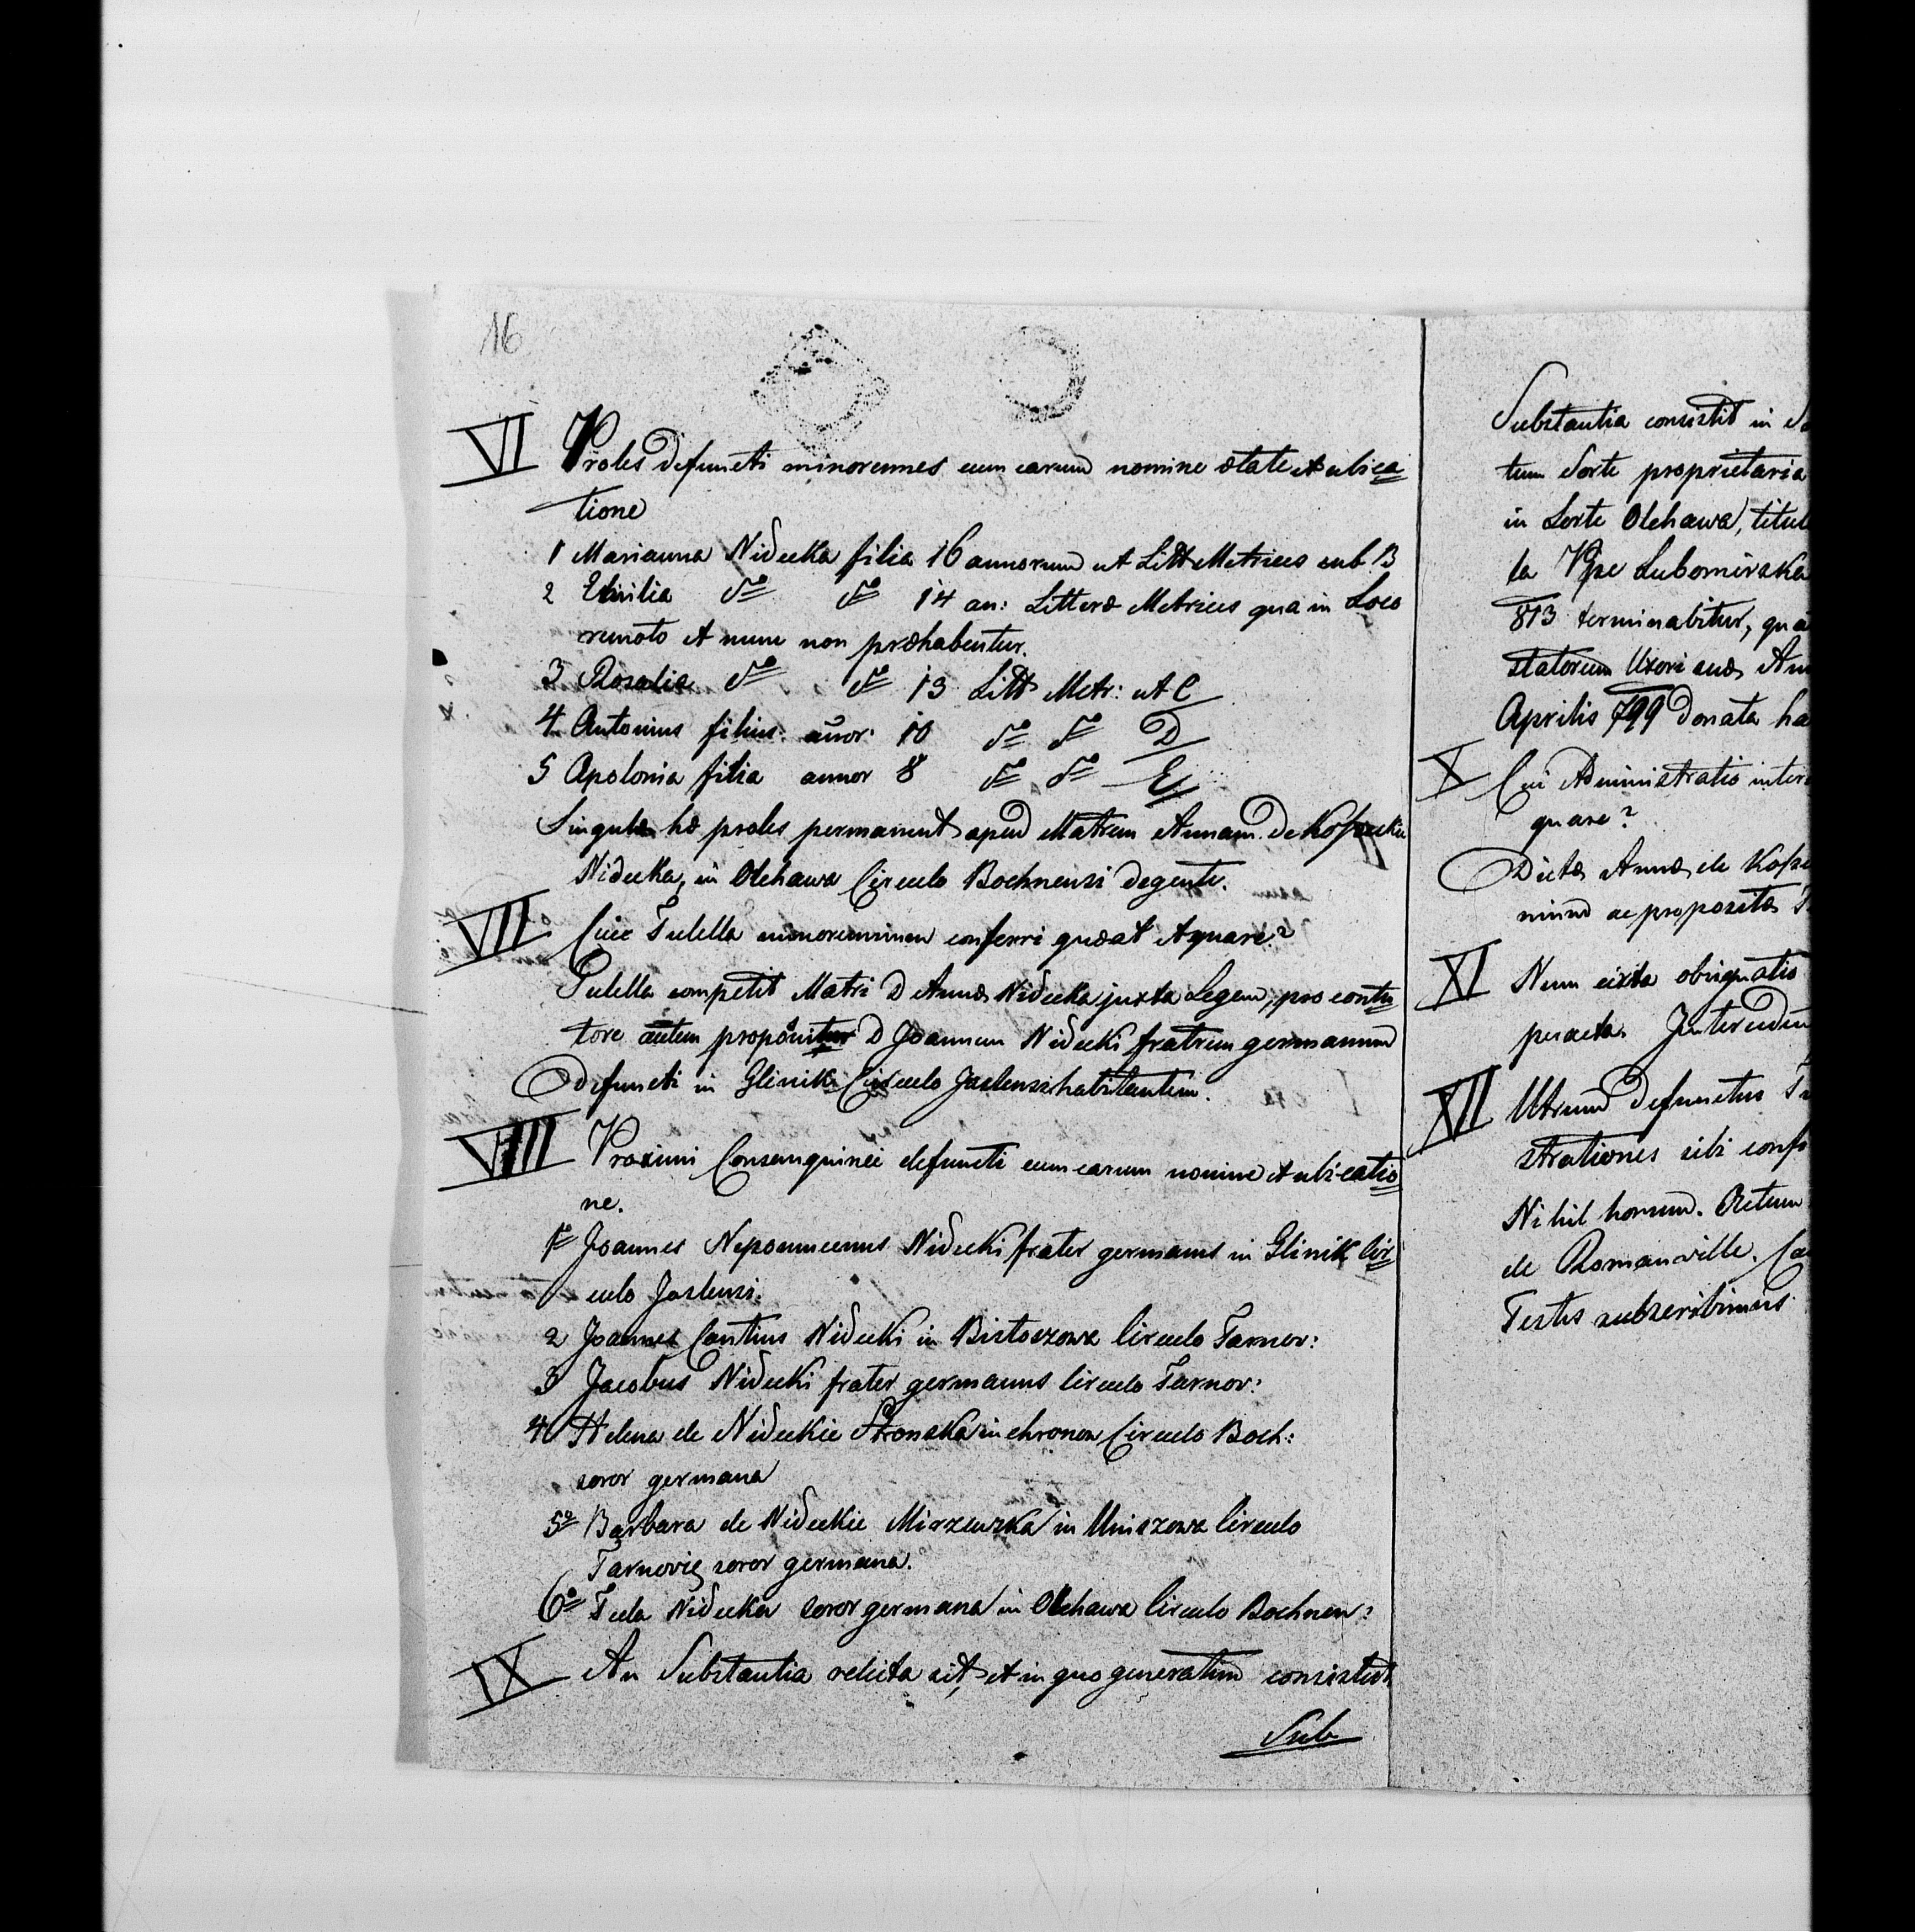 16
VI Proles defuncti minorennes cum earum nomine ætate et ubica
tione
1 Marianna Nidecka filia 16 annorum ut Litt Metrices sub B
2 Emilia do do 14 an: Litteræ Metrices qua in Loco
remoto et nunc non præhabentur.
3 Rosalia do do 13 Litt Metr: ut C
4 Antonius filius annor: 10 do do D
5 Apolonia filia annor 8 do do E
Singulæ hæ proles permanent apud Matrem Annam de
Nidecka, in Olchawa Circulo Bochnensi degente.
VII Cuie Tutella minorennium conferri quæat et quare?
Tutella competit Matri D Annæ Nidecka juxta Legem, pro contu
tore autem proponitur D Joannem Nidecki fratrem germanum
defuncti in Glinik Circulo Jaslensi habitantem.
VIII Proximi Consanguinei defuncti cum earum nomine et ubi-catio
ne.
1o Joannes Nepomucenus Nidecki frater germanus in Glinik Cir
culo Jaslensi.
2 Joannes Cantius Nidecki in Bistoszowa Circulo Tarnov:
3 Jacobus Nidecki frater germanus Circulo Tarnov:
4 Helena de Nideckie Stronska in chronow Circulo Boch:
soror germana
5o Barbara de Nideckie in Uniszowa Circulo
Tarnovie soror germana.
6o Tecla Nidecka soror germana in Olchawa Circulo Bochnen:
IX An Substantia relicta sit, et in quo generatim consistat
Sub
Substantia consistit in
tum Sorte proprietaria
in Sorte Olchawa, titul
ta Lubomirska
813 terminabitur, qua
statorum Uxori suæ An
Aprilis 799 donata ha
X Cui Administratio inter
quare?
Dictæ Annæ de
ac propositæ
XI Num obsignatio
peracta. Interedum
XII Utrum defunctus
strationes sibi conf
Nihil horum.
de Romanville.
Testes subscribimus